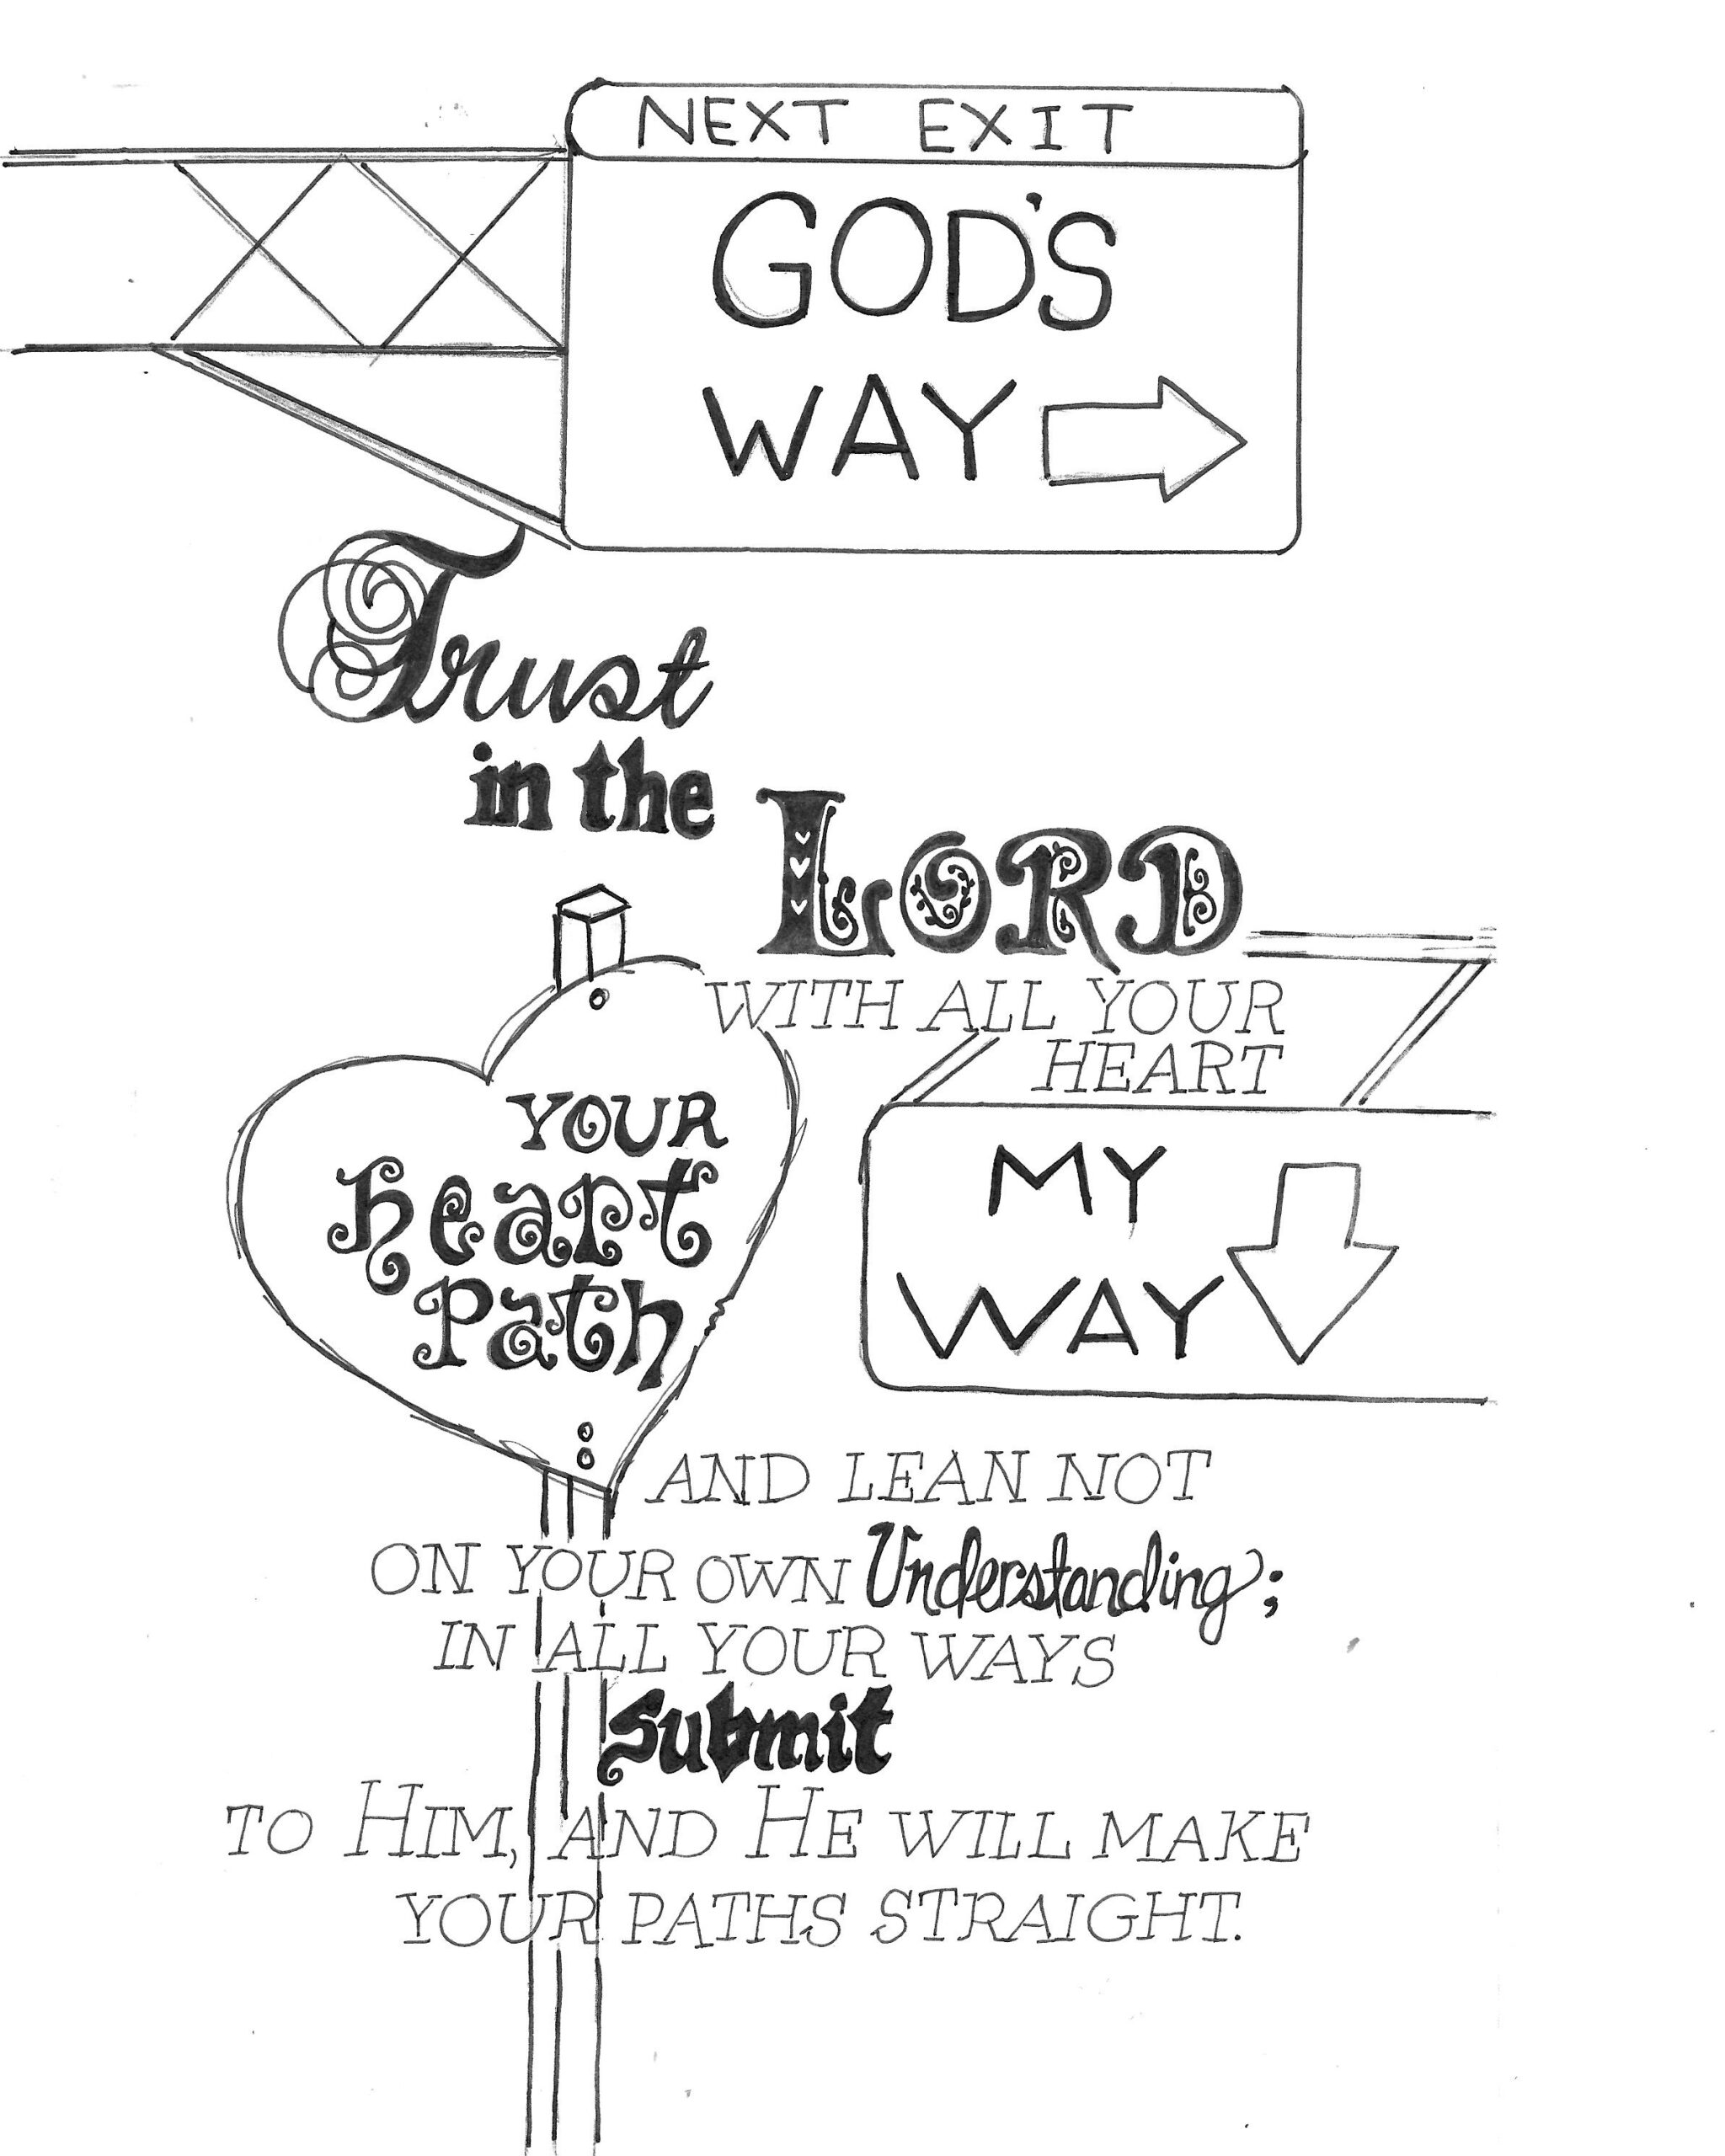 NEXT EXIT
GOD'S
WAY
Trust
in the
LORD
WITH ALL YOUR
HEART
YOUR
heart
path
MY
WAY
AND LEAN NOT
ON YOUR OWN Understanding;
IN ALL YOUR WAYS
Submit
TO HIM, AND HE WILL MAKE
YOUR PATHS STRAIGHT.